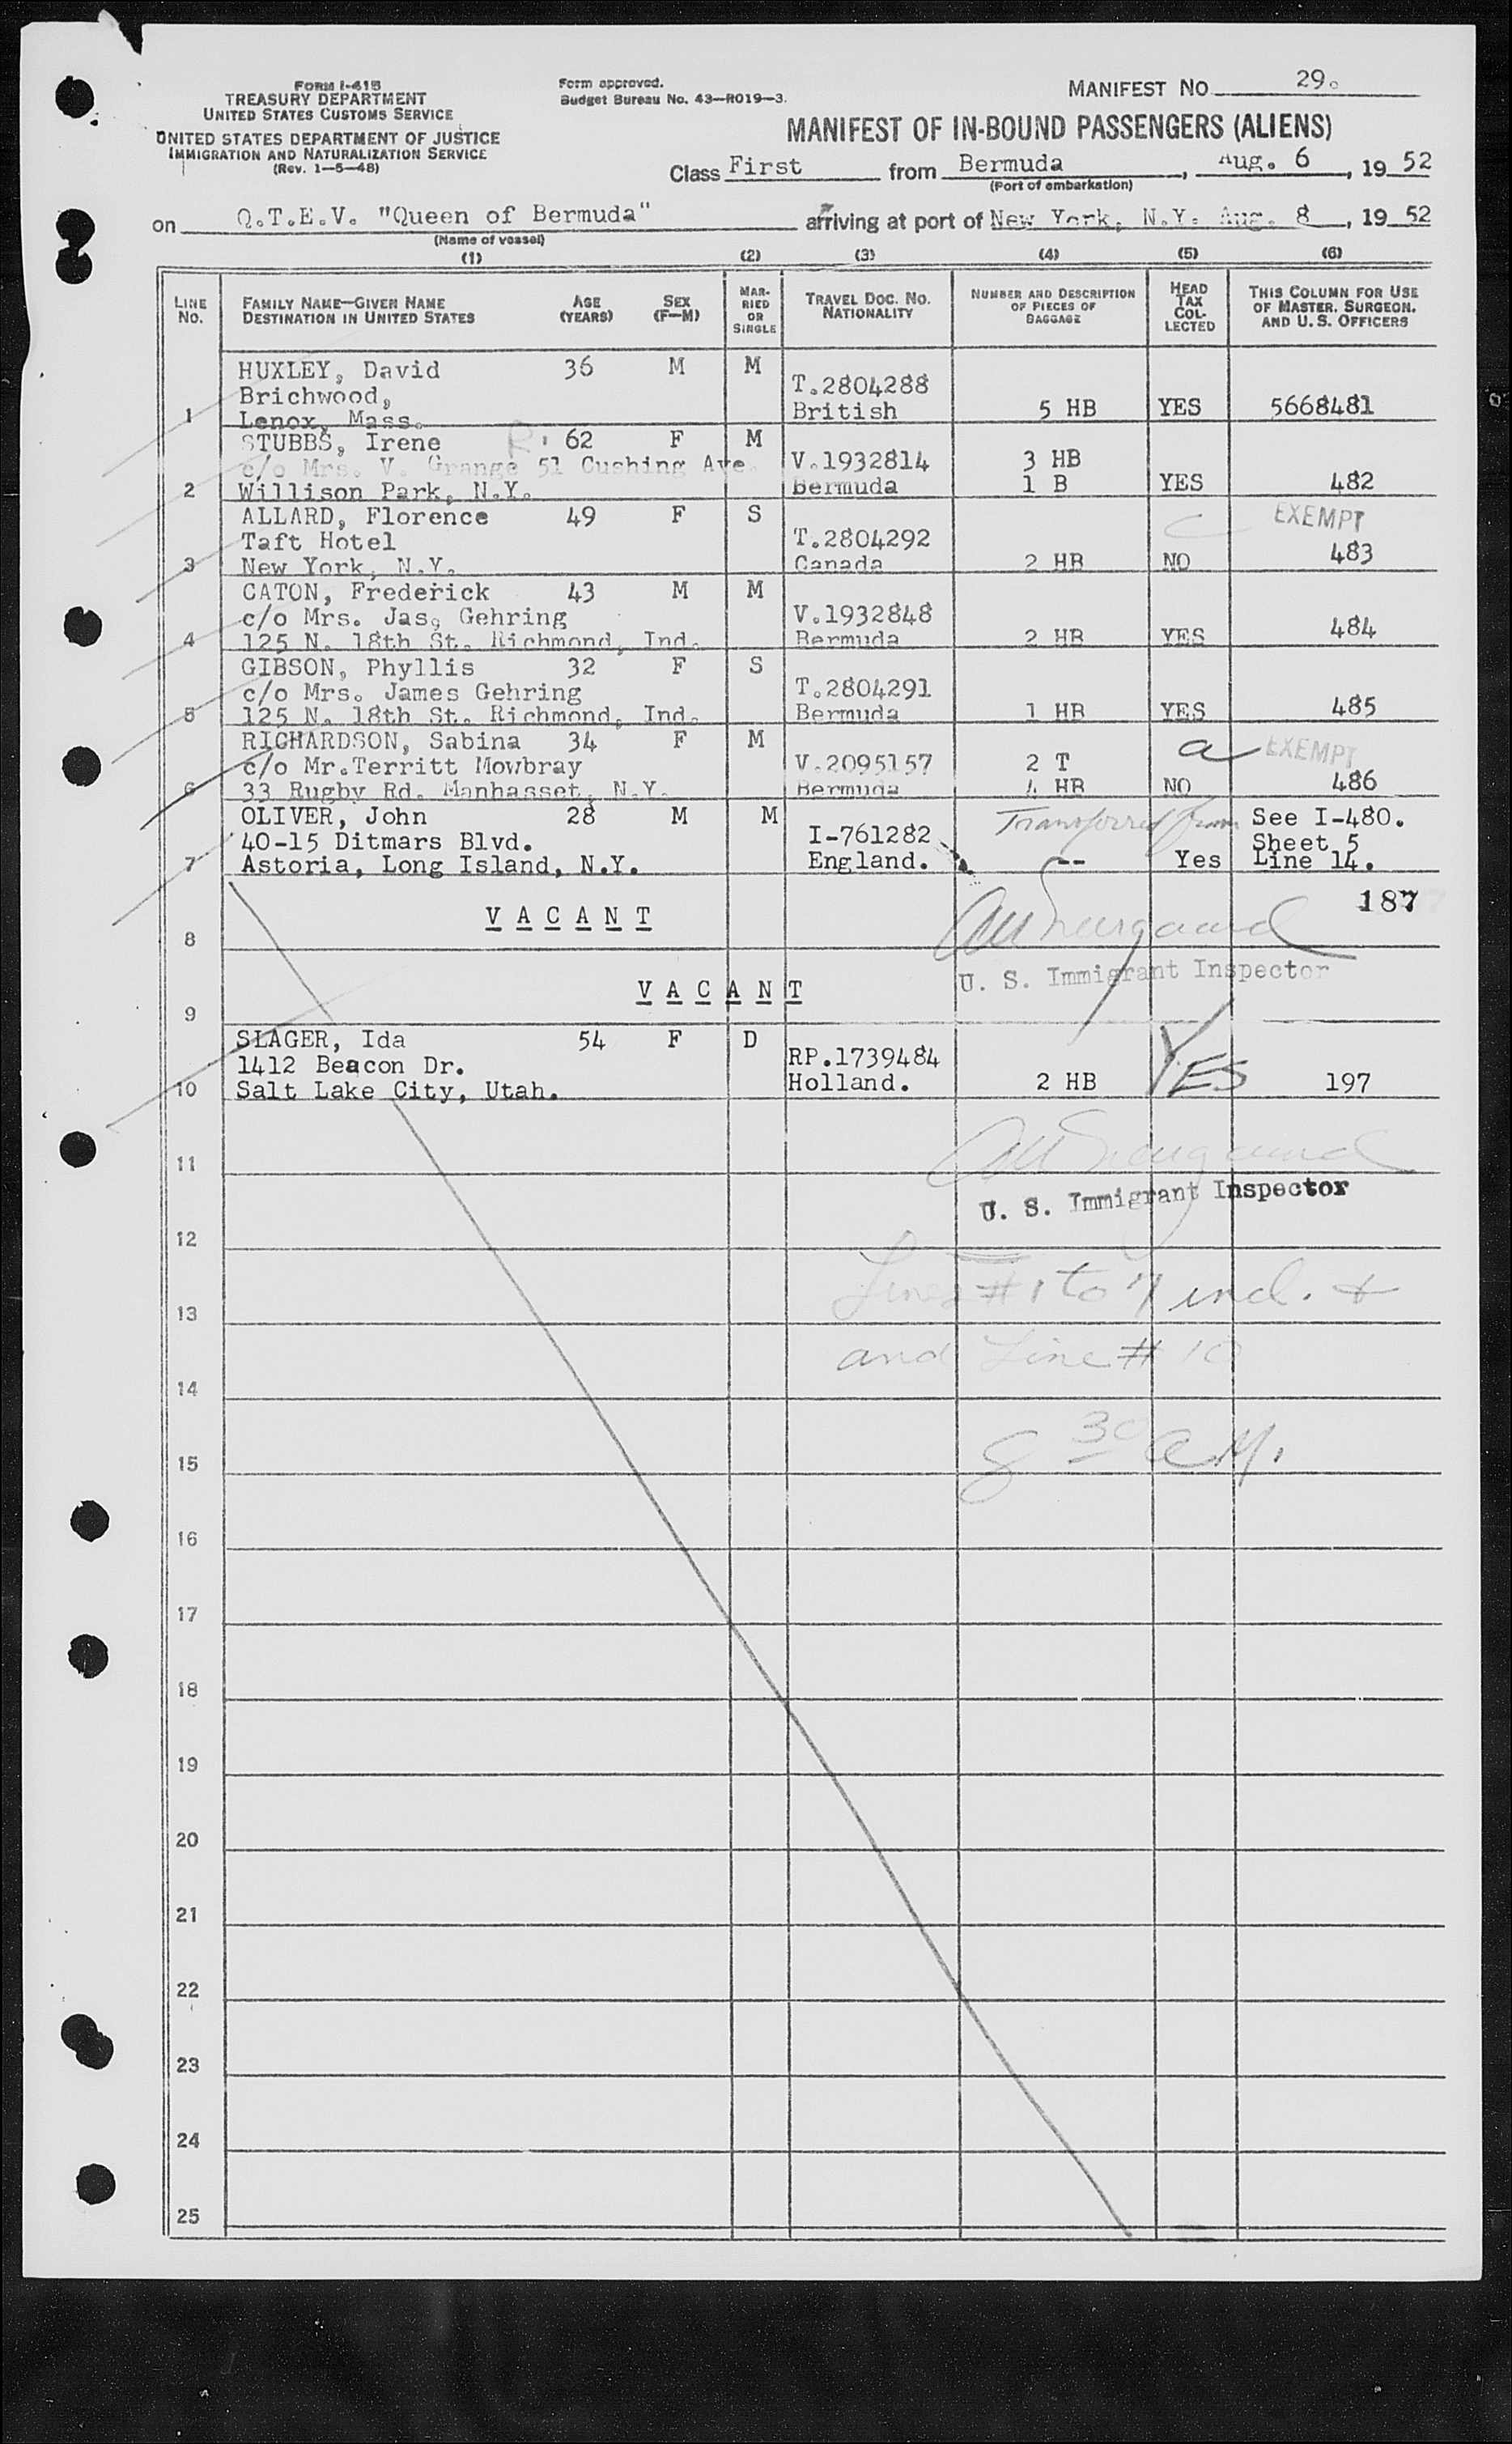 FORM I-415
TREASURY DEPARTMENT
UNITED STATES CUSTOMS SERVICE
UNITED STATES DEPARTMENT OF JUSTICE
IMMIGRATION AND NATURALIZATION SERVICE
(Rev. 1-5-48)
Form approved.
Budget Bureau No. 43-R019-3.
MANIFEST NO. 29.
MANIFEST OF IN-BOUND PASSENGERS (ALIENS)
Class First from Bermuda, Aug. 6, 19 52
(Port of embarkation)
on Q.T.E.V. "Queen of Bermuda" arriving at port of New York, N.Y. Aug. 8, 19 52
(Name of vessel)
(1) (2) (3) (4) (5) (6)
LINE NO. FAMILY NAME—GIVEN NAME DESTINATION IN UNITED STATES AGE (YEARS) SEX (F—M) MARRIED OR SINGLE TRAVEL DOC. NO. NATIONALITY NUMBER AND DESCRIPTION OF PIECES OF BAGGAGE HEAD TAX COLLECTED THIS COLUMN FOR USE OF MASTER, SURGEON, AND U. S. OFFICERS
HUXLEY, David 36 M M
Brichwood, T.2804288
1 Lenox, Mass. British 5 HB YES 5668481
STUBBS, Irene R. 62 F M
c/o Mrs. V. Grange 51 Cushing Ave. V.1932814 3 HB
2 Willison Park, N.Y. Bermuda 1 B YES 482
ALLARD, Florence 49 F S EXEMPT
Taft Hotel T.2804292
3 New York, N.Y. Canada 2 HB NO 483
CATON, Frederick 43 M M
c/o Mrs. Jas, Gehring V.1932848
4 125 N. 18th St. Richmond, Ind. Bermuda 2 HB YES 484
GIBSON, Phyllis 32 F S
c/o Mrs. James Gehring T.2804291
5 125 N. 18th St. Richmond, Ind. Bermuda 1 HB YES 485
RICHARDSON, Sabina 34 F M a EXEMPT
c/o Mr.Territt Mowbray V.2095157 2 T
6 33 Rugby Rd. Manhasset, N.Y. Bermuda 4 HB NO 486
OLIVER, John 28 M M Transferred from See I-480.
40-15 Ditmars Blvd. I-761282 Sheet 5
7 Astoria, Long Island, N.Y. England. -- Yes Line 14.
187
8 VACANT
U. S. Immigrant Inspector
9 VACANT
SLAGER, Ida 54 F D
1412 Beacon Dr. RP.1739484
10 Salt Lake City, Utah. Holland. 2 HB YES 197
11
U. S. Immigrant Inspector
12
Lines # 1 to 7 incl. &
13
and Line # 10
14
8 30 A.M.
15
16
17
18
19
20
21
22
23
24
25